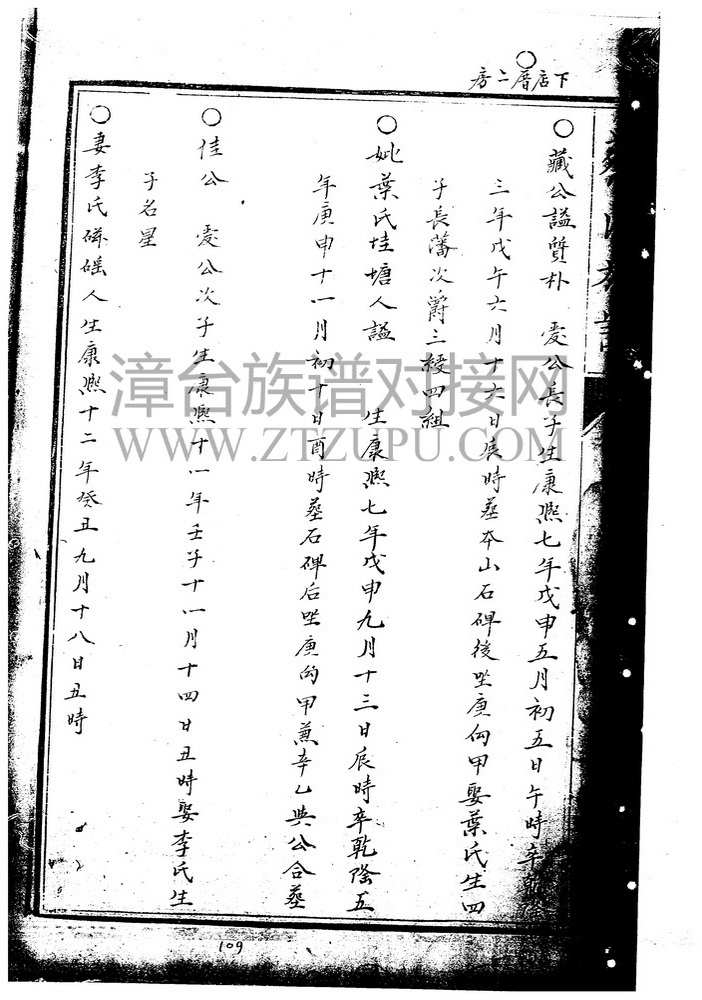 下店厝二房
○藏公謚質朴 爱公長子生康熙七年戊申五月初五日午時卒
三年戊午六月十六日辰時塟本山石碑後坐庚向甲娶葉氏生四
子長藩次爵三綬四組
○妣葉氏珪塘人謚 生康熙七年戊申九月十三日辰時卒乾隆五
年庚申十一月初十日酉時塟石碑后坐庚向甲兼辛乙與公合塟
○佳公 爱公次子生康熙十一年壬子十一月十四日丑時娶李氏生
子名星
○妻李氏 人生康熙十二年癸丑九月十八日丑時
109
漳台族谱对接网
WWW.ZTZUPU.COM